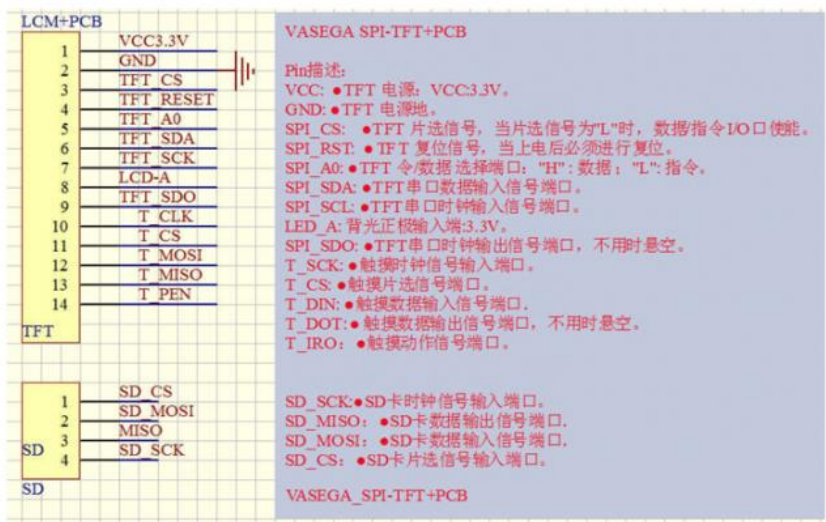 LCM+PCB
VCC3.3V
1
GND
2
TFT_CS
3
TFT_RESET
4
TFT_A0
5
TFT_SDA
6
TFT_SCK
7
LCD-A
8
TFT_SDO
9
T_CLK
10
T_CS
11
T_MOSI
12
T_MISO
13
T_PEN
14
TFT
SD_CS
1
SD_MOSI
2
MISO
3
SD
SD_SCK
4
SD
VASEGA SPI-TFT+PCB
Pin描述:
VCC: ●TFT 电源: VCC:3.3V。
GND: ●TFT 电源地。
SPI_CS: ●TFT 片选信号, 当片选信号为"L"时, 数据/指令I/O口使能。
SPI_RST: ●TFT 复位信号, 当上电后必须进行复位。
SPI_A0: ●TFT 令/数据 选择端口: "H" : 数据; "L": 指令。
SPI_SDA: ●TFT串口数据输入信号端口。
SPI_SCL: ●TFT串口时钟输入信号端口。
LED_A: 背光正极输入端:3.3V。
SPI_SDO: ●TFT串口时钟输出信号端口, 不用时悬空。
T_SCK: ●触摸时钟信号输入端口。
T_CS: ●触摸片选信号端口。
T_DIN: ●触摸数据输入信号端口.
T_DOT: ●触摸数据输出信号端口, 不用时悬空。
T_IRO: ●触摸动作信号端口。
SD_SCK:●SD卡时钟信号输入端口。
SD_MISO: ●SD卡数据输出信号端口.
SD_MOSI: ●SD卡数据输入信号端口.
SD_CS: ●SD卡片选信号输入端口。
VASEGA_SPI-TFT+PCB